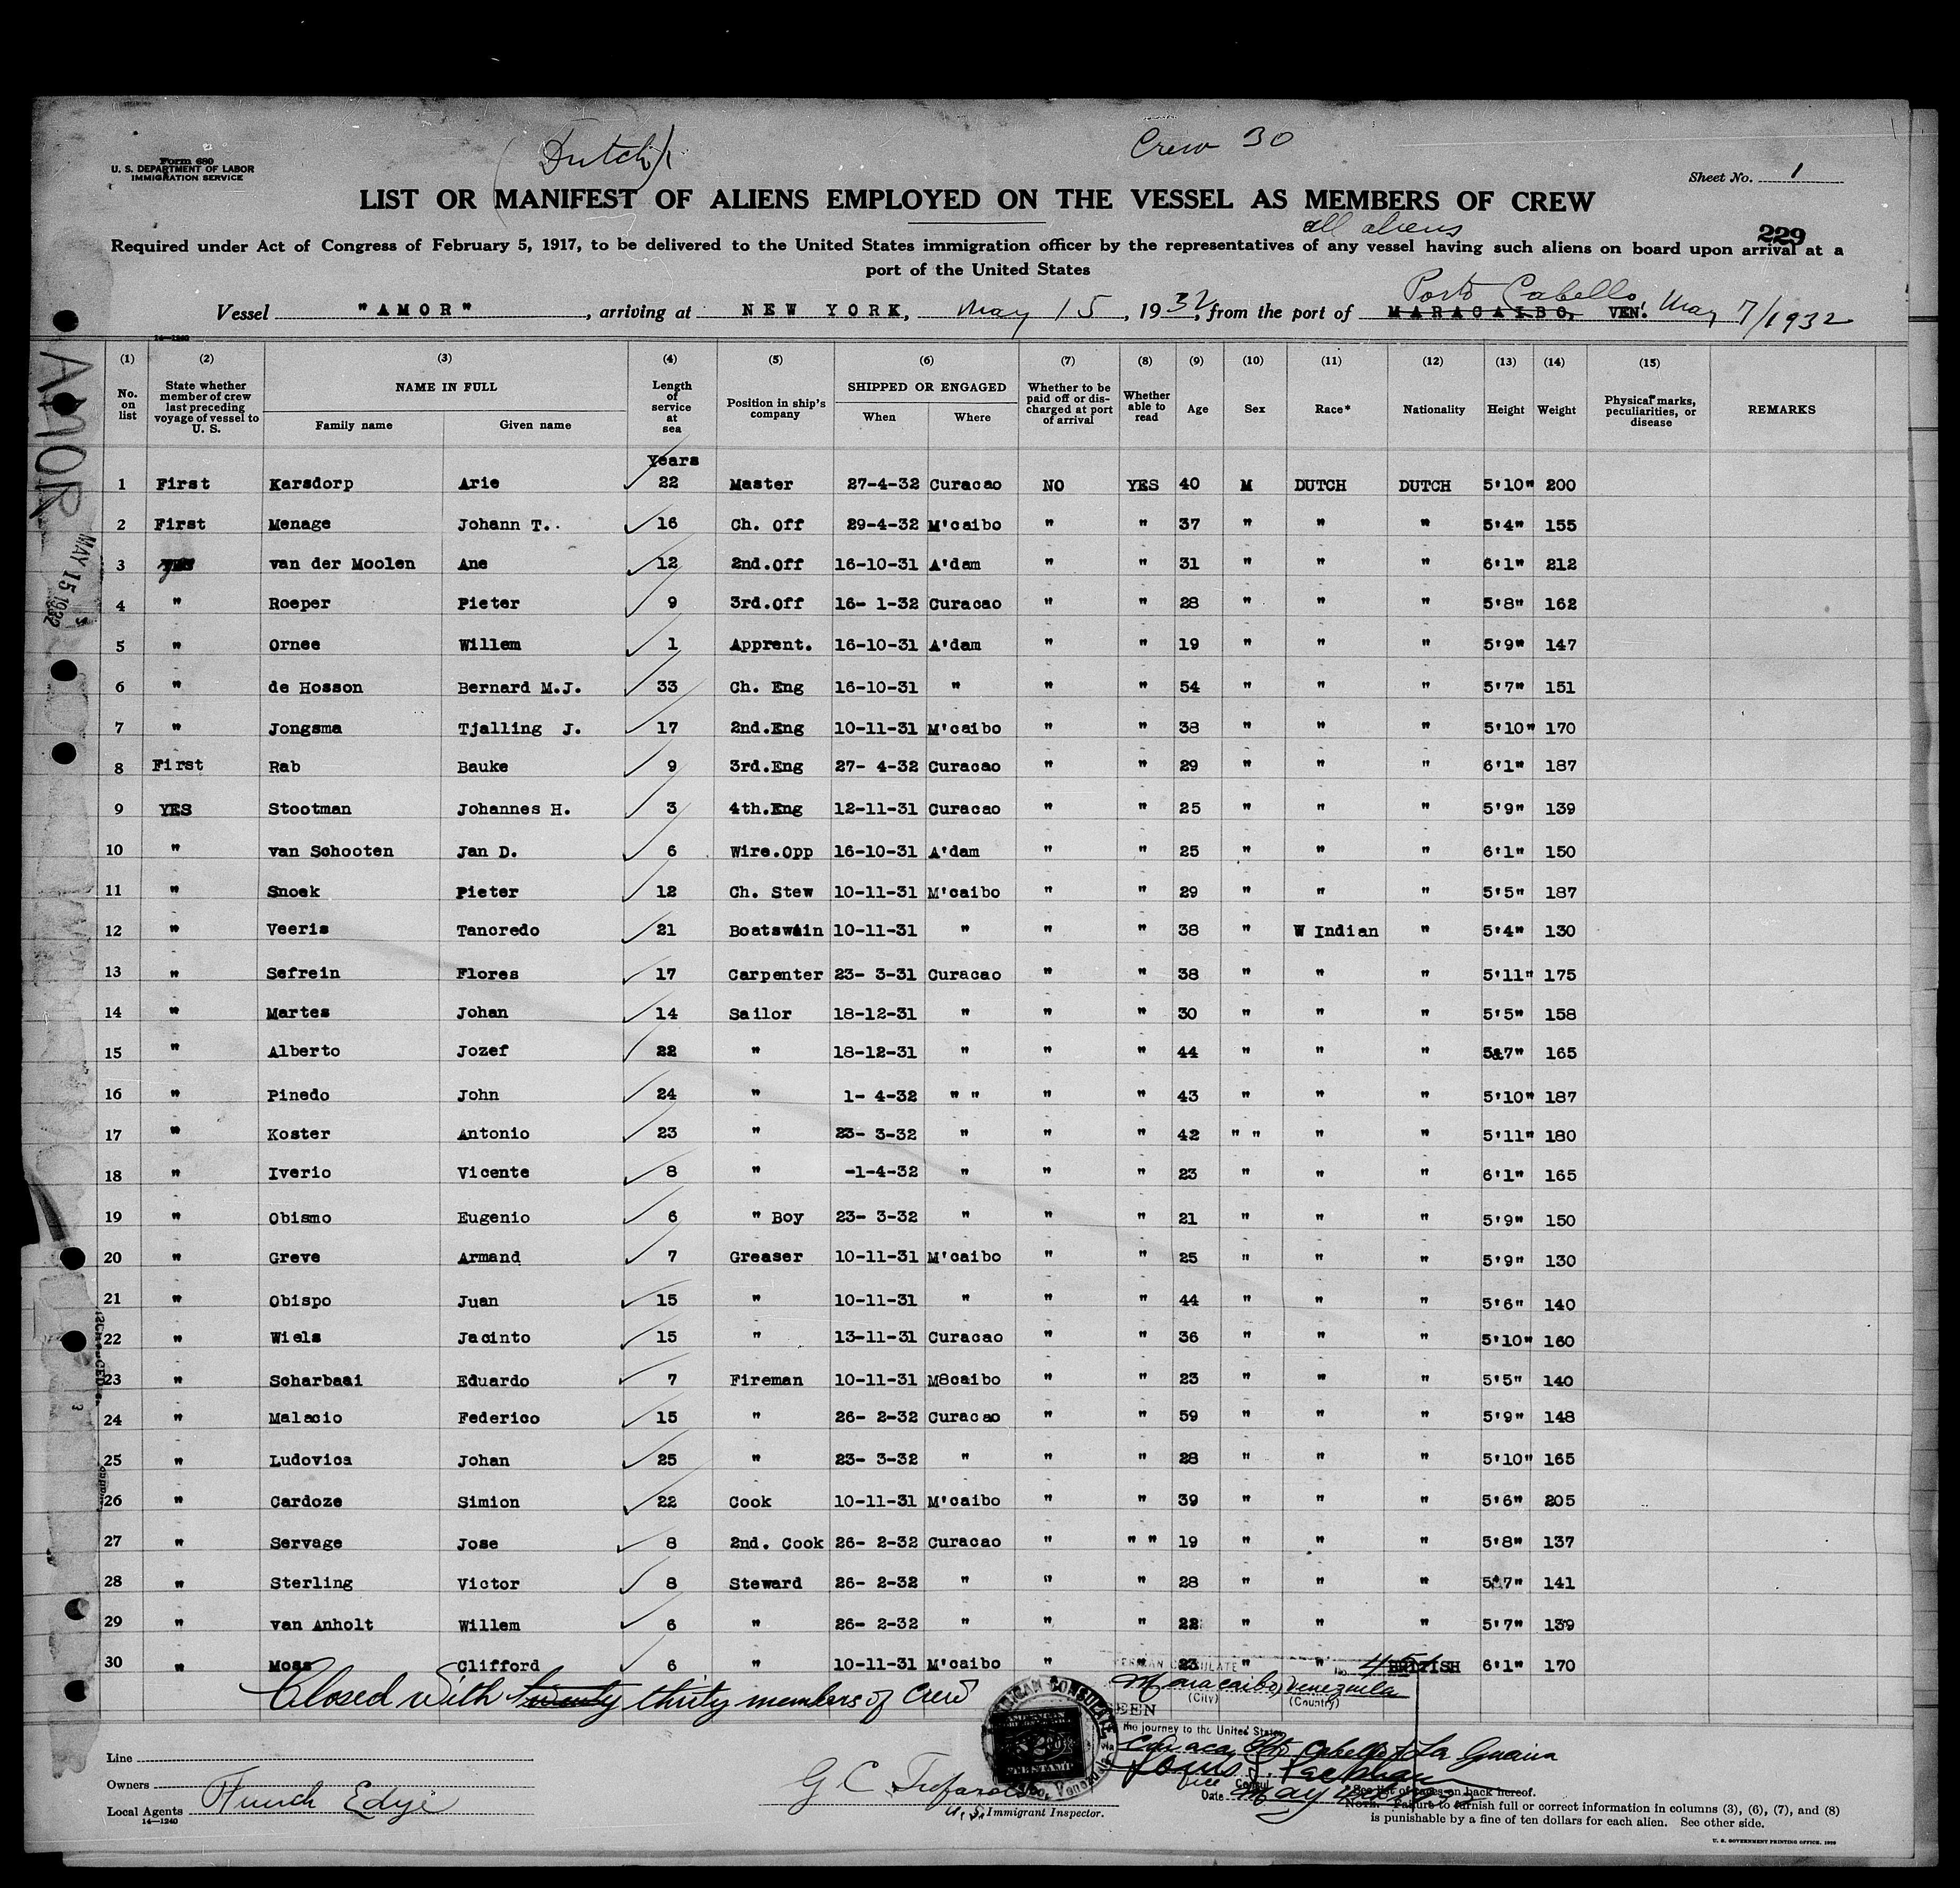 (Dutch)
Crew 30
Form 680
U. S. DEPARTMENT OF LABOR
IMMIGRATION SERVICE
Sheet No. 1
LIST OR MANIFEST OF ALIENS EMPLOYED ON THE VESSEL AS MEMBERS OF CREW
all aliens
229
Required under Act of Congress of February 5, 1917, to be delivered to the United States immigration officer by the representatives of any vessel having such aliens on board upon arrival at a
port of the United States
Porto Cabello,
Vessel "AMOR", arriving at NEW YORK, May 15, 1932, from the port of MARACAIBO, VEN. May 7/1932
14—1240
AMOR
MAY 15 1932
(1) (2) (3) (4) (5) (6) (7) (8) (9) (10) (11) (12) (13) (14) (15)
No. on list
State whether member of crew last preceding voyage of vessel to U. S.
NAME IN FULL
Family name Given name
Length of service at sea
Position in ship's company
SHIPPED OR ENGAGED
When Where
Whether to be paid off or discharged at port of arrival
Whether able to read
Age Sex Race* Nationality Height Weight
Physical marks, peculiarities, or disease
REMARKS
Years
1 First Karsdorp Arie 22 Master 27-4-32 Curacao NO YES 40 M DUTCH DUTCH 5'10" 200
2 First Menage Johann T. 16 Ch. Off 29-4-32 M'caibo " " 37 " " " 5'4" 155
3 YES van der Moolen Ane 12 2nd.Off 16-10-31 A'dam " " 31 " " " 6'1" 212
4 " Roeper Pieter 9 3rd.Off 16- 1-32 Curacao " " 28 " " " 5'8" 162
5 " Ornee Willem 1 Apprent. 16-10-31 A'dam " " 19 " " " 5'9" 147
6 " de Hosson Bernard M.J. 33 Ch. Eng 16-10-31 " " " 54 " " " 5'7" 151
7 " Jongsma Tjalling J. 17 2nd.Eng 10-11-31 M'caibo " " 38 " " " 5'10" 170
8 First Rab Bauke 9 3rd.Eng 27- 4-32 Curacao " " 29 " " " 6'1" 187
9 YES Stootman Johannes H. 3 4th.Eng 12-11-31 Curacao " " 25 " " " 5'9" 139
10 " van Schooten Jan D. 6 Wire.Opp 16-10-31 A'dam " " 25 " " " 6'1" 150
11 " Snoek Pieter 12 Ch. Stew 10-11-31 M'caibo " " 29 " " " 5'5" 187
12 " Veeris Tancredo 21 Boatswain 10-11-31 " " " 38 " W Indian " 5'4" 130
13 " Sefrein Flores 17 Carpenter 23- 3-31 Curacao " " 38 " " " 5'11" 175
14 " Martes Johan 14 Sailor 18-12-31 " " " 30 " " " 5'5" 158
15 " Alberto Jozef 22 " 18-12-31 " " " 44 " " " 5&7" 165
16 " Pinedo John 24 " 1- 4-32 " " " " 43 " " " 5'10" 187
17 " Koster Antonio 23 " 23- 3-32 " " " 42 " " " " 5'11" 180
18 " Iverio Vicente 8 " -1-4-32 " " " 23 " " " 6'1" 165
19 " Obismo Eugenio 6 " Boy 23- 3-32 " " " 21 " " " 5'9" 150
20 " Greve Armand 7 Greaser 10-11-31 M'caibo " " 25 " " " 5'9" 130
21 " Obispo Juan 15 " 10-11-31 " " " 44 " " " 5'6" 140
22 " Wiels Jacinto 15 " 13-11-31 Curacao " " 36 " " " 5'10" 160
23 " Scharbaai Eduardo 7 Fireman 10-11-31 M8caibo " " 23 " " " 5'5" 140
24 " Malacio Federico 15 " 26- 2-32 Curacao " " 59 " " " 5'9" 148
25 " Ludovica Johan 25 " 23- 3-32 " " " 28 " " " 5'10" 165
26 " Cardoze Simion 22 Cook 10-11-31 M'caibo " " 39 " " " 5'6" 205
27 " Servage Jose 8 2nd. Cook 26- 2-32 Curacao " " " 19 " " " 5'8" 137
28 " Sterling Victor 8 Steward 26- 2-32 " " " 28 " " " 5'7" 141
29 " van Anholt Willem 6 " 26- 2-32 " " " 22 " " " 5'7" 139
30 " Moss Clifford 6 " 10-11-31 M'caibo " " 23 " " BRITISH 6'1" 170
Closed with twenty thirty members of crew
AMERICAN CONSULATE
Maracaibo, Venezuela
(City) (Country)
SEEN
the journey to the United States
Curacao, Pto Cabello & La Guaira
Vice Consul
Date May
Line
Owners
Local Agents Funch Edye
14—1240
U. S. Immigrant Inspector.
*See list of races on back hereof.
NOTE.—Failure to furnish full or correct information in columns (3), (6), (7), and (8)
is punishable by a fine of ten dollars for each alien. See other side.
U. S. GOVERNMENT PRINTING OFFICE